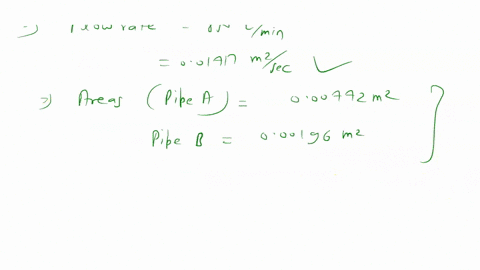 Flow rate = L/min
= 0.01417 m²/sec ✓
2) Areas (Pipe A) = 0.00442 m²
Pipe B = 0.00196 m²